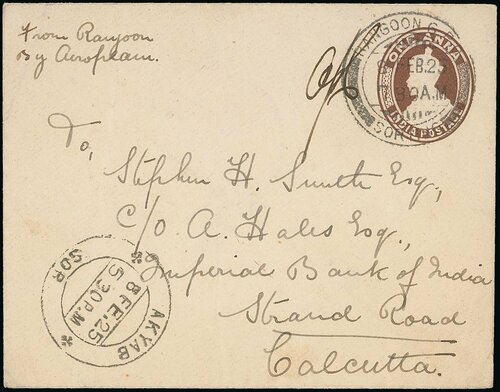 From Rangoon
By Aeroplane.
RANGOON G.
FEB.25
30 A.M
SOR
ONE ANNA
INDIA POSTAGE
To,
Stephen H. Smith Esq.,
C/o A. Hales Esq.,
Imperial Bank of India
Strand Road
Calcutta.
SOR
8 FE.25
5.30 P.M
AKYAB